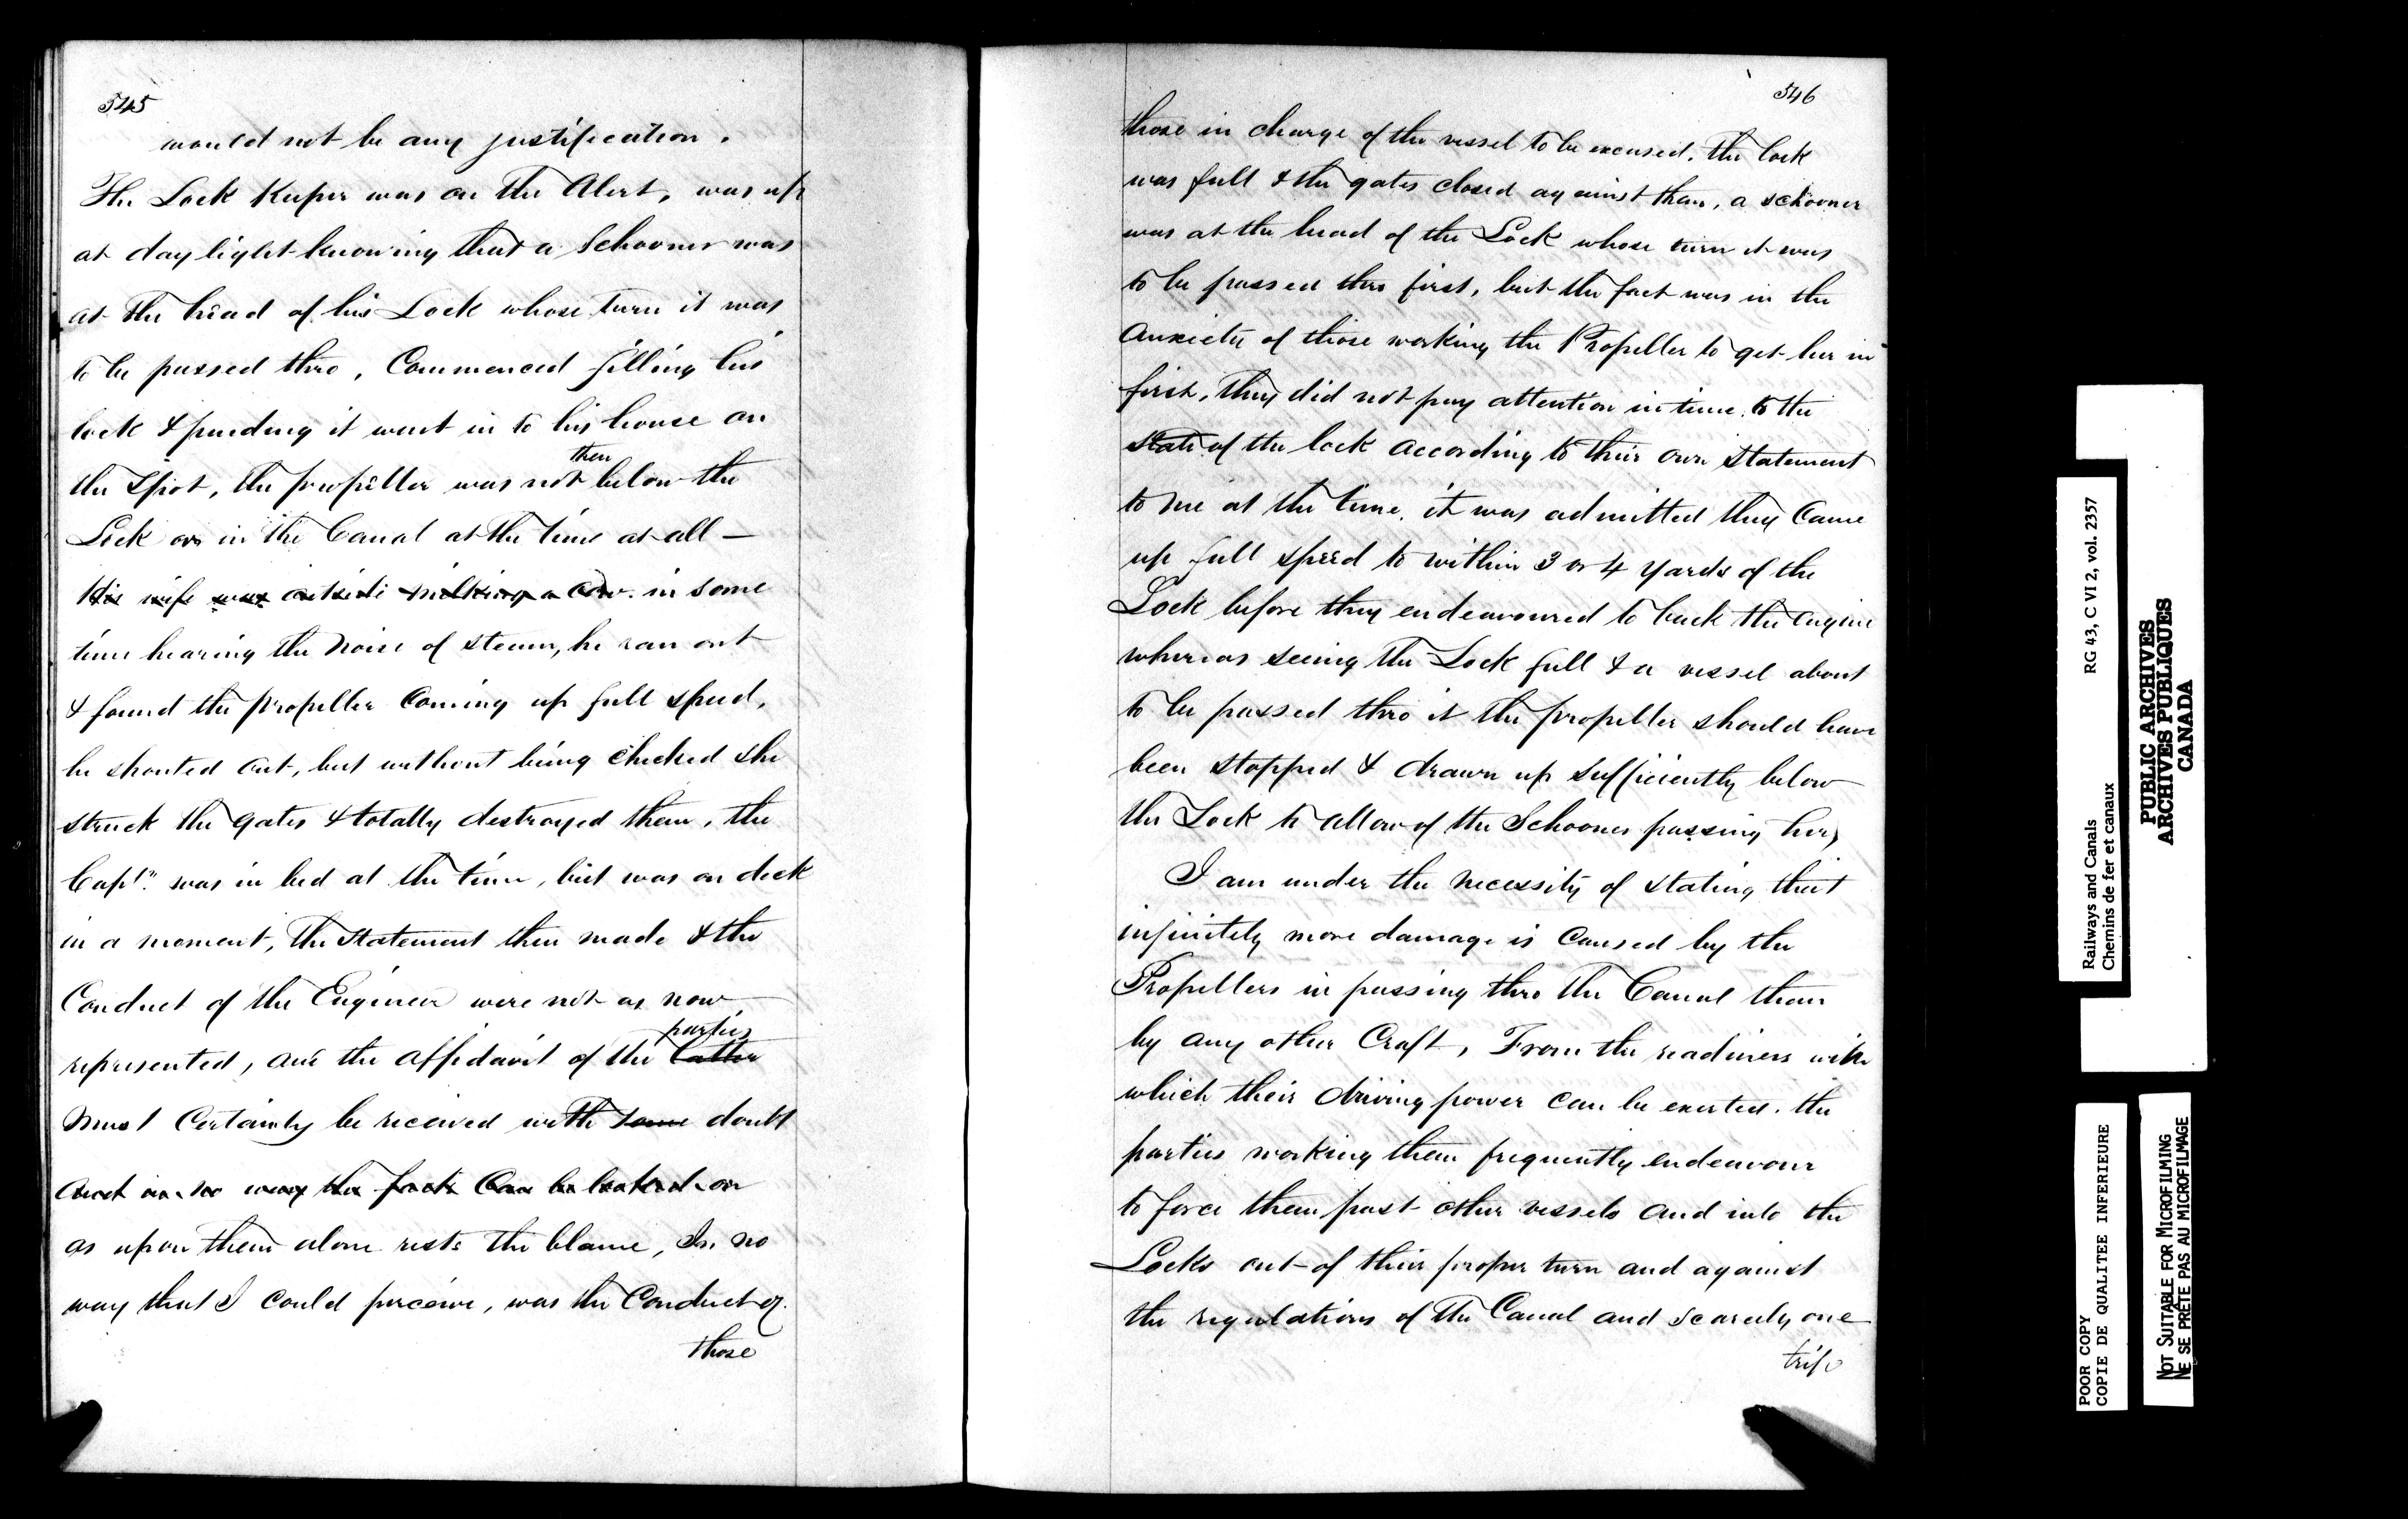 545
would not be any justification.
The Lock Keeper was on the Alert, was up
at day light knowing that a Schooner was
at the head of his Lock whose turn it was
to be passed thro, Commenced filling his
lock & pending it went in to his house on
then
the Spot, the propeller was not below the
Lock or in the Canal at the time at all —
His wife was outside milking a Cow. in some
time hearing the Noise of Steam, he ran out
& found the propeller Coming up full speed,
he shouted out, but without being checked she
struck the gates & totally destroyed them, the
Capt.n was in bed at the time, but was on deck
in a moment, the statement then made & the
Conduct of the Engineer were not as now
parties
represented, and the affidavit of the latter
must Certainly be received with some doubt
And in no way the facts Can be looked on
as upon them alone rests the blame, In no
way that I could perceive, was the Conduct of
those
546
those in charge of the vessel to be excused. the lock
was full & the gates closed against them, a schooner
was at the head of the Lock whose turn it was
to be passed thro first, but the fact was in the
Anxiety of those working the Propeller to get her in
first, they did not pay attention in time to the
state of the lock according to their own statement
to me at the time. it was admitted they Came
up full speed to within 3 or 4 yards of the
Lock before they endeavoured to back the engine
whereas seeing the Lock full & a vessel about
to be passed thro it the propeller should have
been stopped & drawn up sufficiently below
the Lock to allow of the Schooner passing her,
I am under the necessity of stating that
infinitely more damage is Caused by the
Propellers in passing thro the Canal than
by any other Craft, From the readiness with
which their driving power can be exerted. the
parties working them frequently endeavour
to force them past other vessels and into the
Locks out of their proper turn and against
the regulations of the Canal and scarcely one
trip
Railways and Canals RG 43, C VI 2, vol. 2357
Chemins de fer et canaux
PUBLIC ARCHIVES
ARCHIVES PUBLIQUES
CANADA
POOR COPY
COPIE DE QUALITEE INFERIEURE
NOT SUITABLE FOR MICROFILMING
NE SE PRÊTE PAS AU MICROFILMAGE